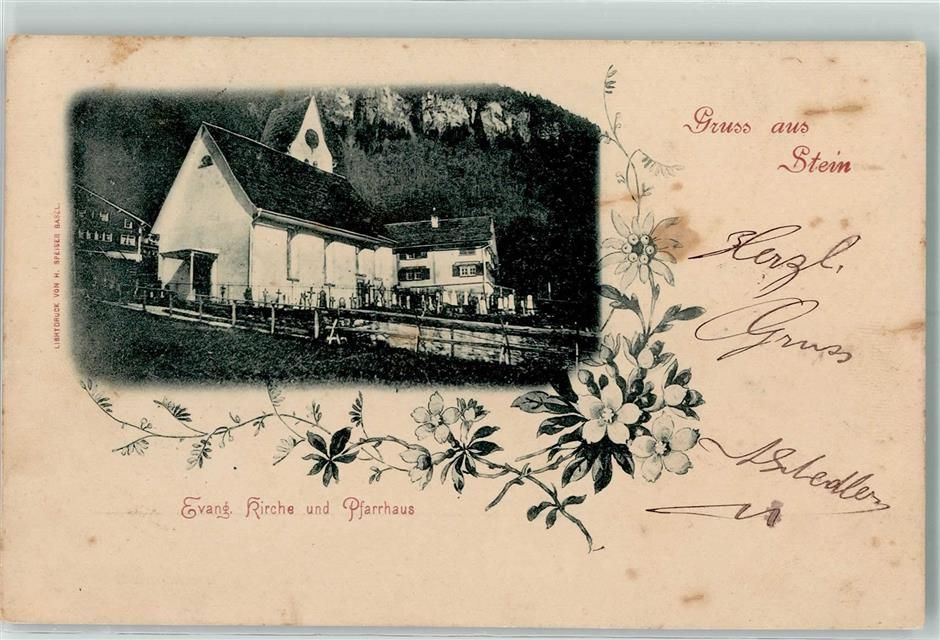 Gruss aus
Stein
Herzl.
Gruss
Evang. Kirche und Pfarrhaus
LICHTDRUCK VON H. SPEISER BASEL.